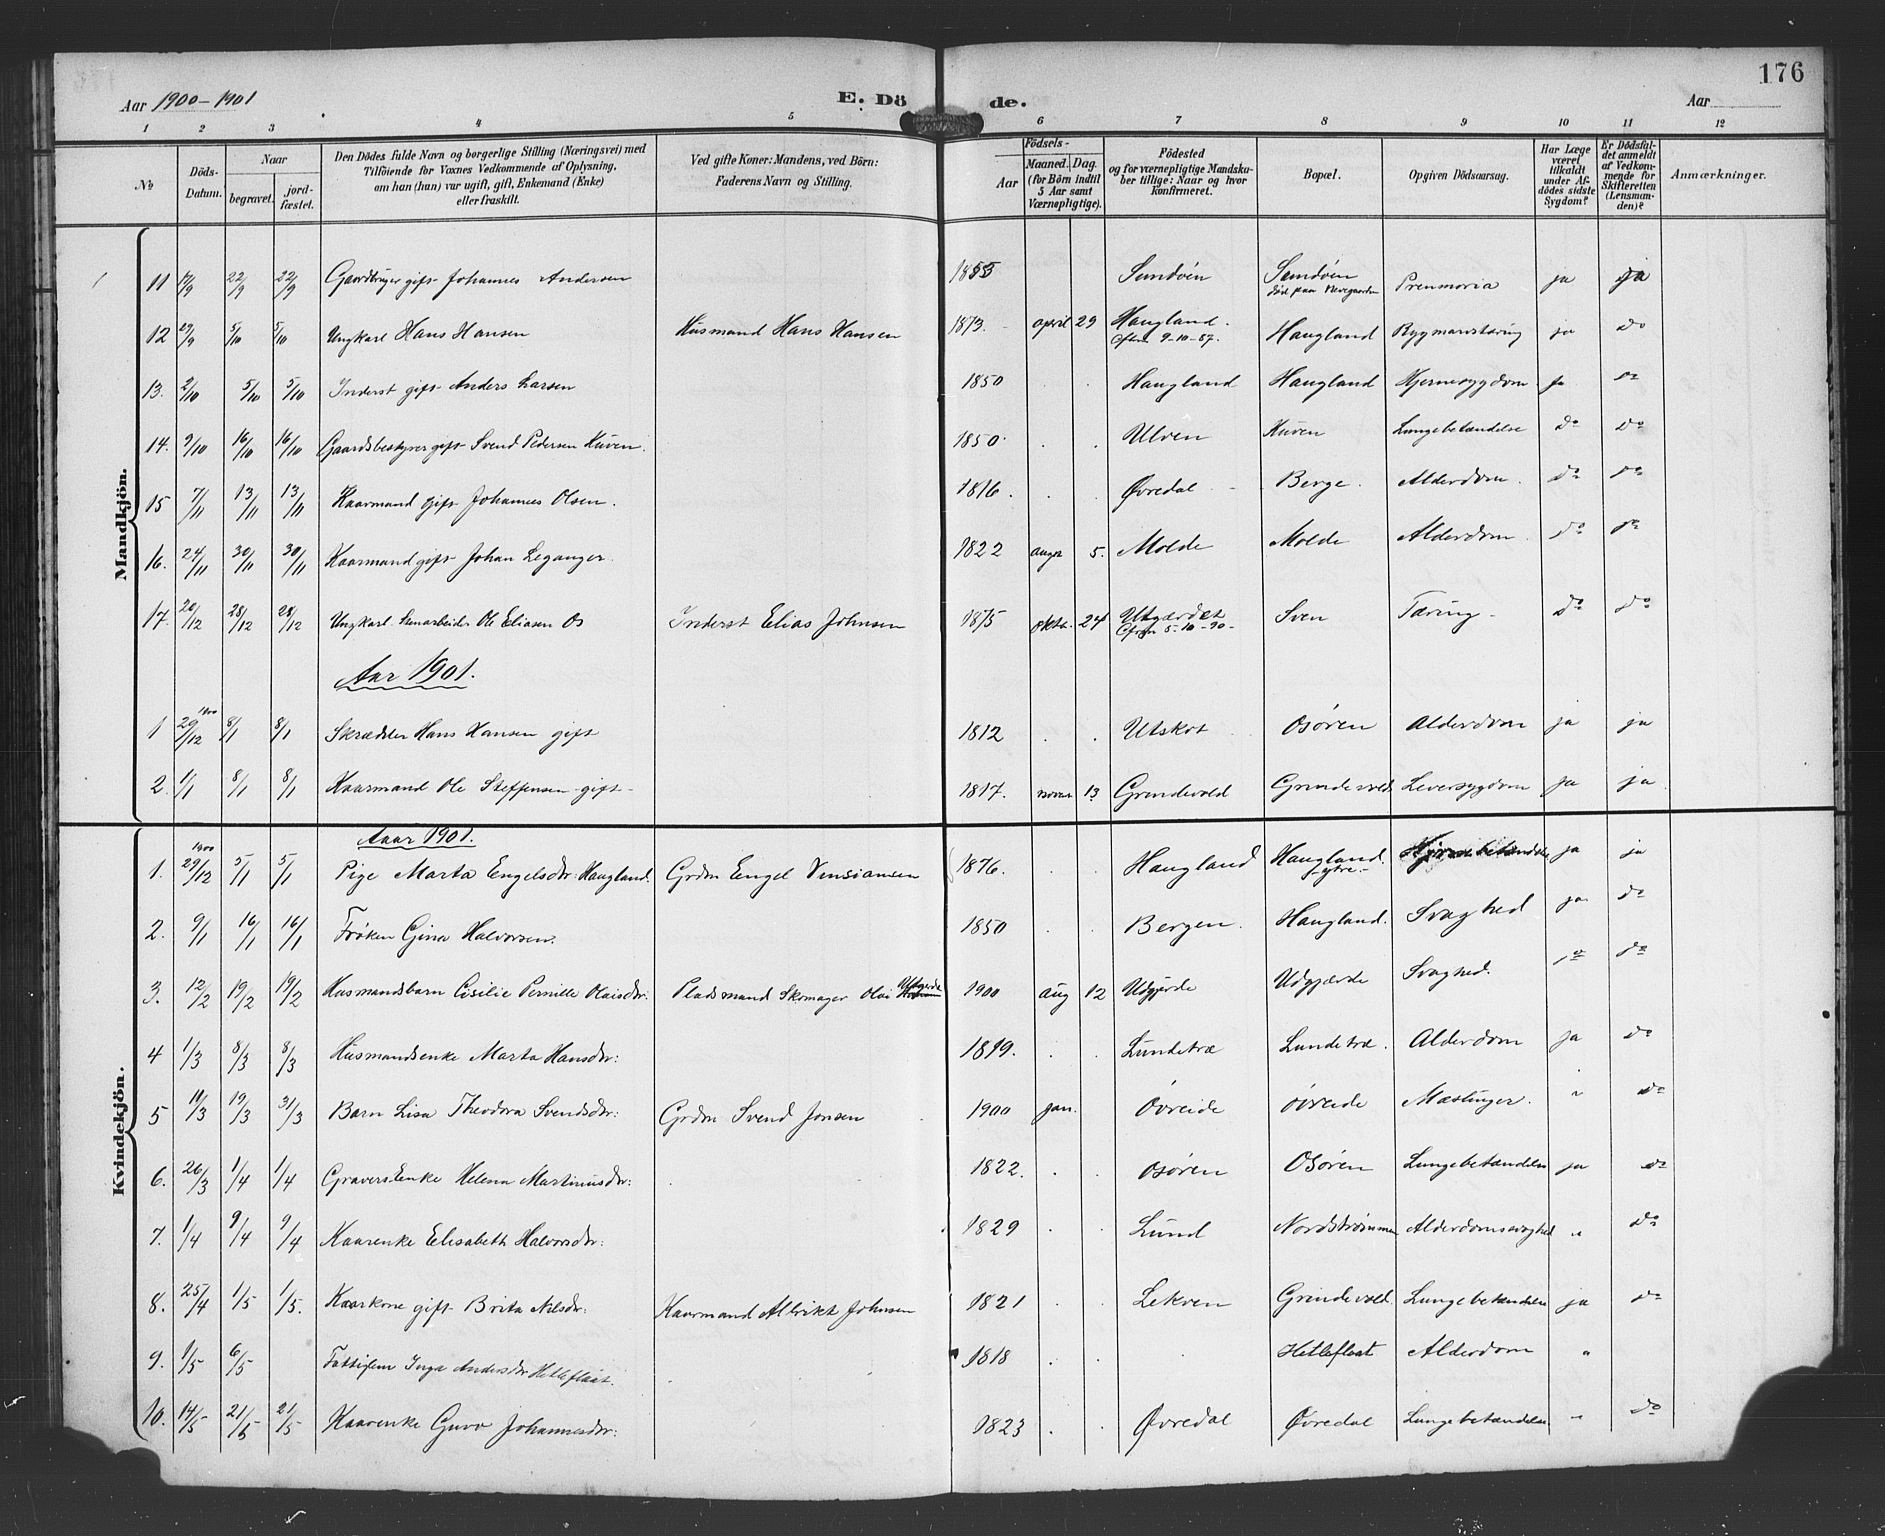 176
Aar 1900-1901 E. Döde. Aar
1 2 3 4 5 6 7 8 9 10 11 12
№ Döds-Datum. Naar begravet. jord-fæstet. Den Dödes fulde Navn og borgerlige Stilling (Næringsvei) med Tilföiende for Voxnes Vedkommende af Oplysning, om han (hun) var ugift, gift, Enkemand (Enke) eller fraskilt. Ved gifte Koner: Mandens, ved Börn: Faderens Navn og Stilling. Födsels- Aar Maaned. Dag. (for Börn indtil 5 Aar samt Værnepligtige). Födested og for værnepligtige Mandsku-ber tillige: Naar og hvor Konfirmeret. Bopæl. Opgiven Dödsaarsag. Har Læge været tilkaldt under Af-dödes sidste Sygdom? Er Dödsfal-det anmeldt af Vedkom-mende for Skifteretten (Lensman-den)? Anmærkninger.
Mandkjön.
11 17/9 22/9 22/9 Gaardbruger gift Johannes Andersen 1855 Sundöen Sundöen ja ja
død paa Nevegaarden
12 29/9 5/10 5/10 Ungkarl Hans Hansen Husmand Hans Hansen 1873. april 29 Haugland. Haugland Rygmarvstæring ja do
Cfirm 9-10-87.
13. 2/10 5/10 5/10 Inderst gift Anders Larsen 1850 Haugland Haugland Hjernesygdom ja do
14. 9/10 16/10 16/10 Gaardsbestyrer gift Svend Pedersen Kuven. 1850. Ulven Kuven Lungebetændelse do do
15 7/11 13/11 13/11 Kaarmand gift Johannes Olsen. 1816. Øvredal Berge. Alderdom. do do
16. 24/11 30/11 30/11 Kaarmand gift Johan Leganger. 1822 augst 5. Molde Molde Alderdom. do do
17. 20/12 28/12 28/12 Ungkarl Ole Eliasen Os Inderst Elias Johnsen 1875 oktb. 24 Utgærdet Sven Tæring do do
Cfirm 5-10-90-
Aar 1901.
1 29/12 1900 8/1 8/1 Skrædder Hans Hansen gift 1812 Utskot Osören Alderdom ja ja
2. 1/1 8/1 8/1 Kaarmand Ole Steffensen gift 1817. novem 13 Grindevold Grindevold Leversygdom ja ja
Kvindekjön.
Aar 1901.
1. 1900 29/12 5/1 5/1 Pige Marta Engelsdtr: Haugland. Grdm Engel 1876. Haugland Haugland. ja ja
ytre.
2. 9/1 16/1 16/1 Frøken Gina Halvorsen. 1850 Bergen. Haugland. Svaghed ja do
3. 12/2 19/2 19/2 Husmandsbarn Cisilie Pernille Olaisdtr: Pladsmand Skomager Olai Utgjerde 1900 aug 12 Udgjerde Udgjærde Svaghed. do do
4 1/3 8/3 8/3 Husmandsenke Marta Hansdtr: 1819. Lundetræ Lundetræ. Alderdom ja do
5 11/3 19/3 31/3 Barn Lisa Theodora Svendsdtr: Grdm Svend Jonsen 1900 jan. Övreide övreide Mæslinger. " do
6. 26/3 1/4 1/4 Graversenke Helena Martinusdtr: 1822. Osören Osören Lungebetændelse ja do
7. 1/4 9/4 9/4 Kaarenke Elisabeth Halvorsdtr: 1829 Lund Nordstrømmen Alderdomssvaghed " do
8. 25/4 1/5 1/5. Kaarkone gift Brita Nilsdtr: Kaarmand Albrikt Johnsen 1821 Lekven Grindevold. Lungebetændelse ja do
9. 1/5 6/5 Fattiglem Inga Andersdtr Hetleflaat. 1818 Hetleflaat Alderdom "
10. 14/5 21/5 21/5 Kaarenke Guro Johannesdtr: 1823 Øvredal Øvredal Lungebetændelse " do